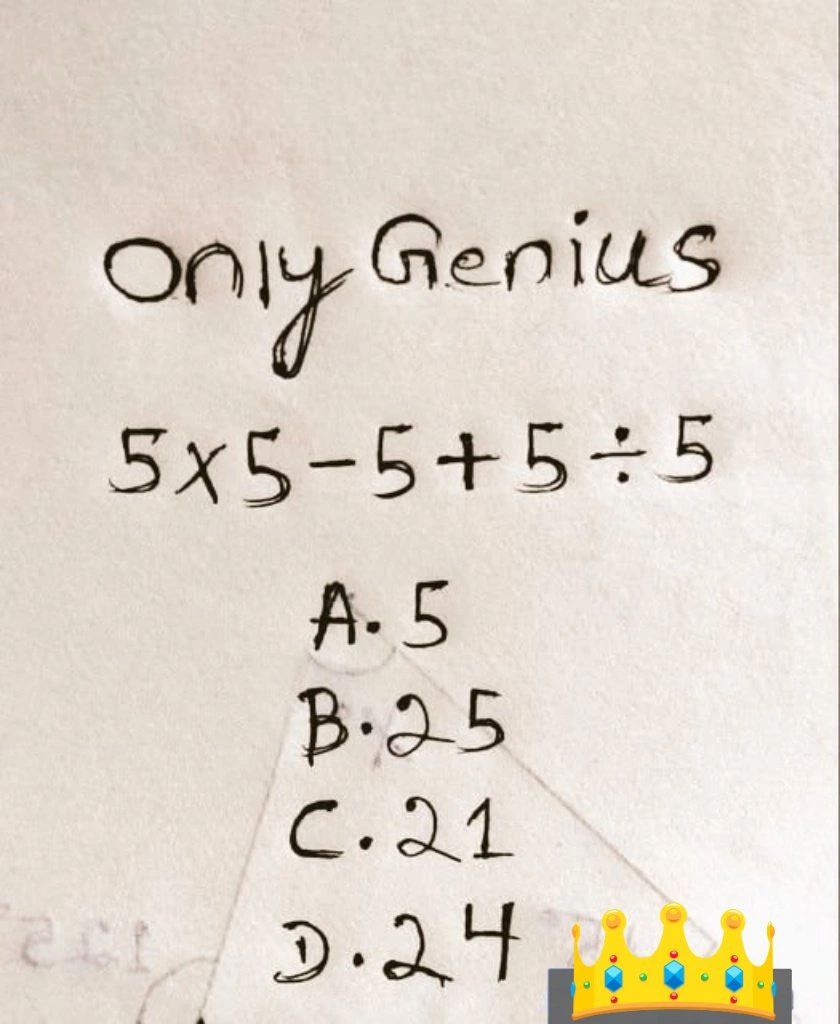 Only Genius
5×5-5+5÷5
A. 5
B. 25
C. 21
D. 24